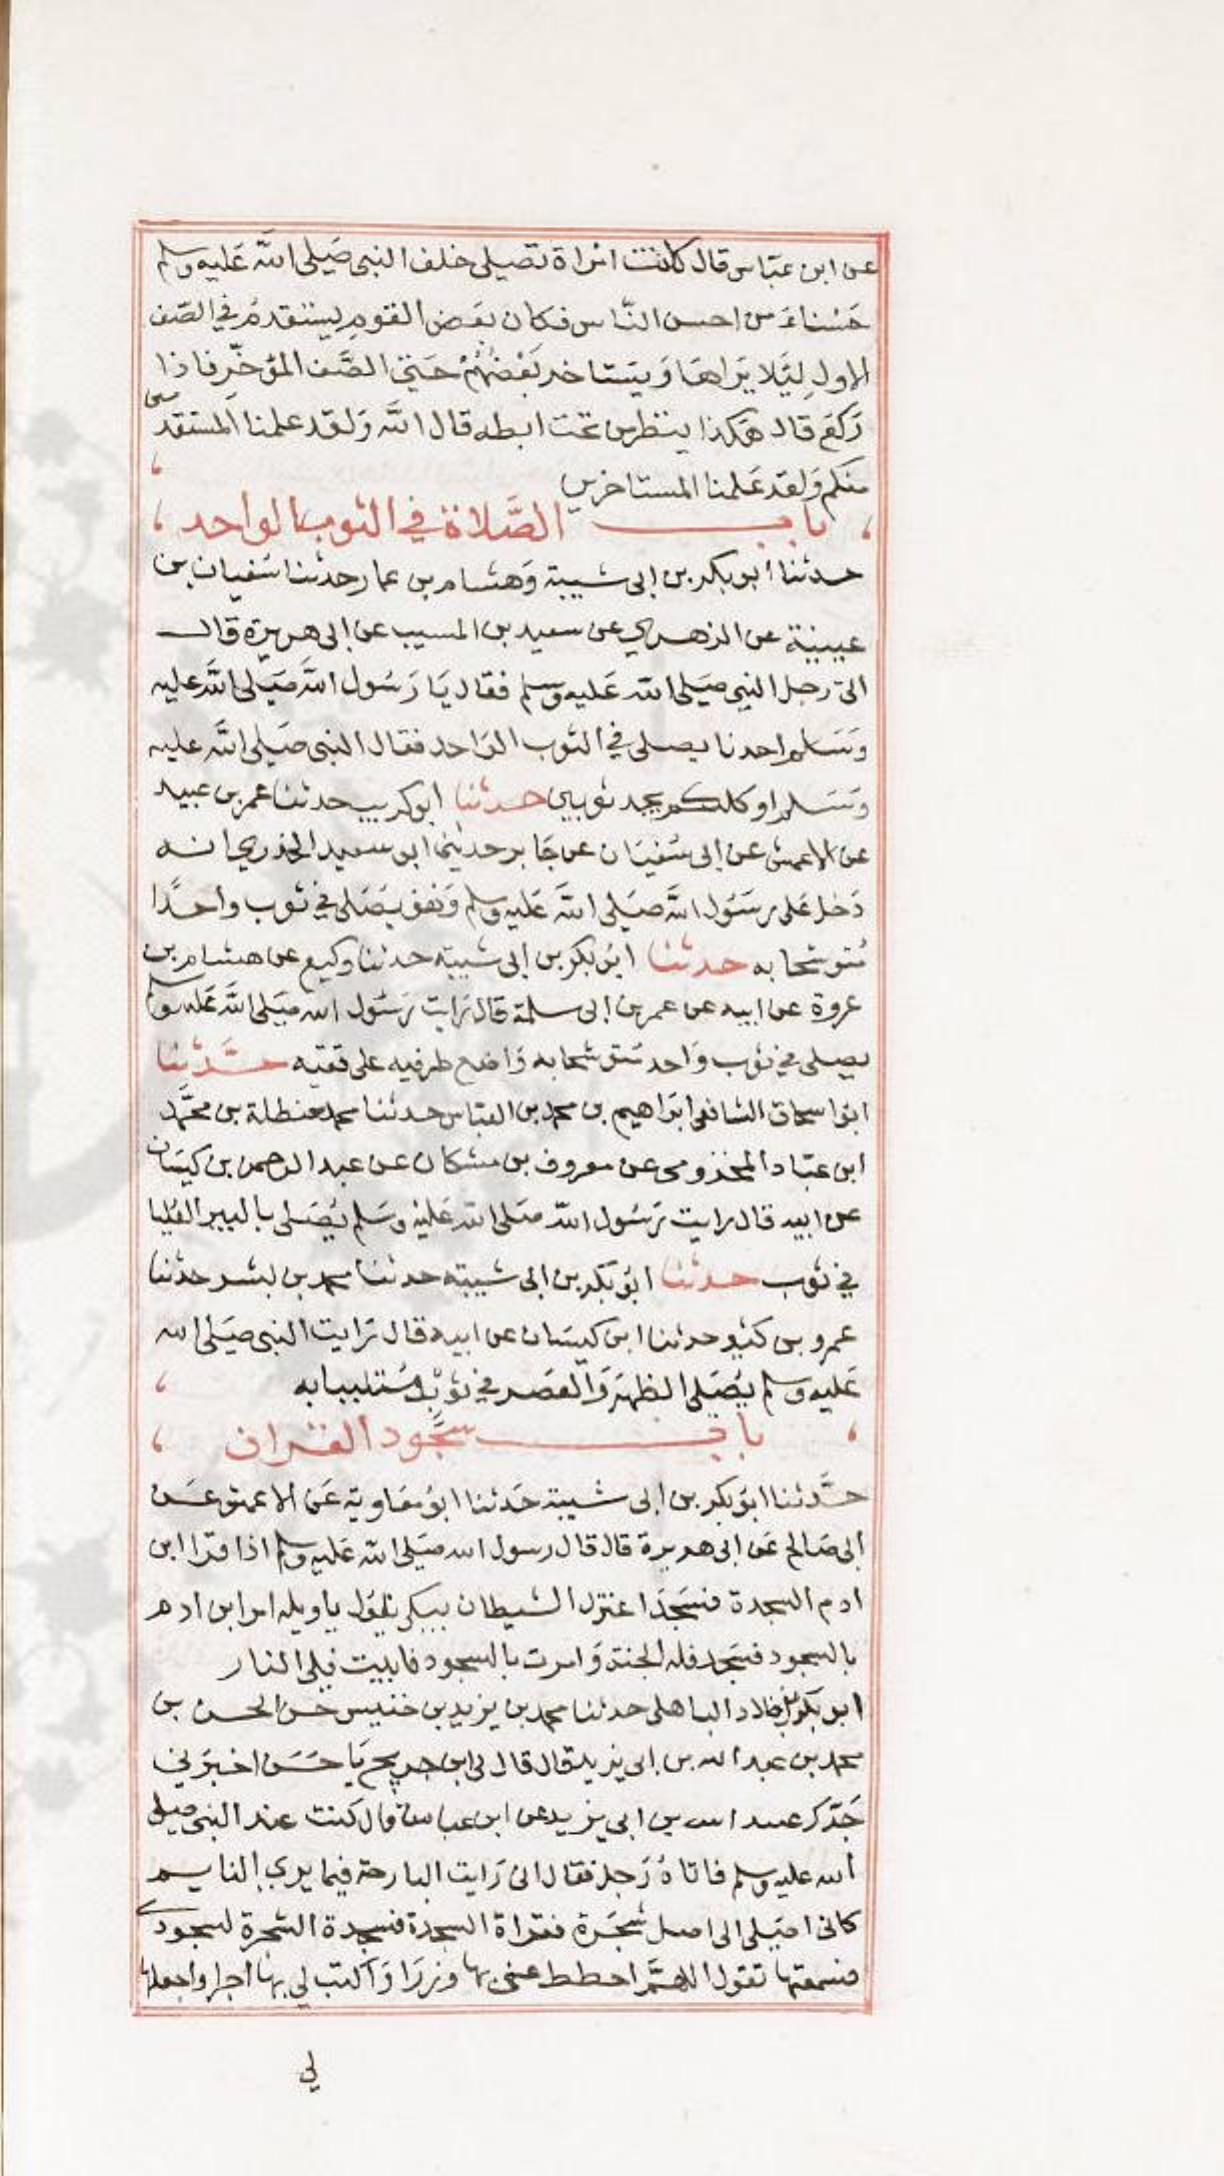 عن ابن عبّاس قال كانت امراة تصلى خلف النبى صَلى اللّه عَليه وسلم
حَسْناءَ من احسن النّاس فكان بعَض القوم يستقدمُ في الصّف
الاولِ ليَلا يَراهَا وَيسَتاخر بَعْضهُمْ حَتي الصَّف المؤخّرِ فاذا
رَكعَ قال هَكذا ينظر من تحت ابطه قال اللّه وَلقد علمنا المستقدمين
منكم وَلقد عَلمنا المستاخرين
باب الصَّلاة في الثوب الواحد
حدثنا ابو بكر بن ابى شيبة وَهشام بن عمار حدثنا سُفيان بن
عيينة عن الزهري عن سعيد بن المسيب عن ابى هريرة قال
اتى رجل النبي صَلى اللّه عَليه وسلم فقال يَا رَسُول اللَّه صَلى اللَّه عليه
وَسَلم احدنا يصلى في الثوب الوَاحد فقال النبى صَلى اللَّه عليه
وَسَلم او كلكم يجد ثوبين حدثنا ابو كريب حدثنا عمر بن عبيد
عن الاعمش عن ابى سُفيَان عن جَابر حدثني ابو سعيد الخدري انه
دَخل عَلى رسَوُل اللّه صَلى اللّه عَليه وسلم وَهو يصَلى في ثوب واحدًا
مُتوشحا به حدثنا ابُو بكر بن ابى شيبة حدثنا وكيع عن هشام بن
عروة عن ابيه عن عمر بن ابى سلمة قال رَايت رَسُول الله صَلى اللَّه عَليه وسلم
يصلى في ثوب وَاحد مُتوشحا به وَاضع طرفيه على عاتقيه حدَّثنا
ابو اسحاق الشافعى ابرَاهيم بن محمد بن العبّاس حدثنا محمد حنظلة بن محمَّد
ابن عبّاد المخزومى عن معروف بن مشكان عن عبد الرحمن بن كيسَان
عن ابيه قال رايت رَسُول اللّه صَلى اللّه عَليْه وسَلم يُصَلى بالبير العُليا
في ثوب حدثنا ابُو بَكر بن ابى شيبَة حدثنا محمد بن بشر حدثنا
عمرو بن كثير حدثنا ابن كيسَان عن ابيه قال رَايت النبى صَلى الله
عَليه وسلم يُصَلى الظهرَ وَالعصَر في ثوْب مُتلببا به
باب سجُود القران
حدَّثنا ابوُ بكر بن ابى شيبة حَدثنا ابوُ معَاوية عَن الاعمش عَن
ابى صَالح عَن ابى هريرة قال قال رسول الله صَلى اللّه عَليه وسلم اذا قرا ابن
ادم السجدة فسَجدَ اعتزل الشيطان يبكي يقوُل ياويله امر ابن ادم
بالسجود فسَجد فله الجنة وَامرت بالسجود فابيت فلى النار
ابو بكر بن خلاد الباهلى حدثنا محمد بن يزيد بن خنيس حسن الحسن بن
محمد بن عبد الله بن ابى يزيد قال قال لى ابن جريج يَا حَسَن اخبَرني
جَدّك عبيد الله بن ابي يزيد عن ابن عباس قال كنت عند النبى صَلى
الله عليه وسلم فاتاهُ رَجل فقال انى رَايت البارحة فيما يري النايم
كانى اصَلى الى اصل شجَرة فقراة السجدة فسجدة الشجرة لسجودي
فسمعتها تقول اللهمَّ احطط عنى بها وزرَا وَاكتب لي بها اجرا واجعلها
لي